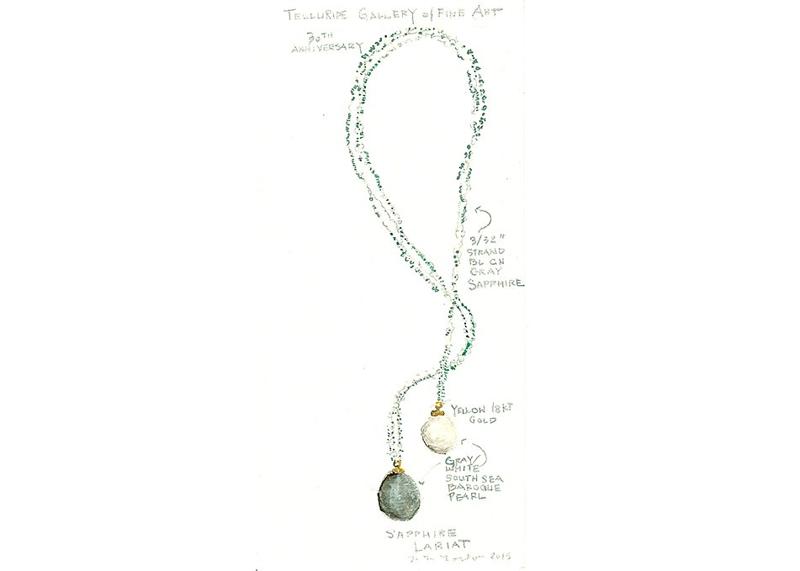 TELLURIDE GALLERY of FINE ART
30TH
ANNIVERSARY
3/32"
STRAND
BL GN
GRAY
SAPPHIRE
YELLOW 18KT
GOLD
GRAY/
WHITE
SOUTH SEA
BAROQUE
PEARL
SAPPHIRE
LARIAT
2015